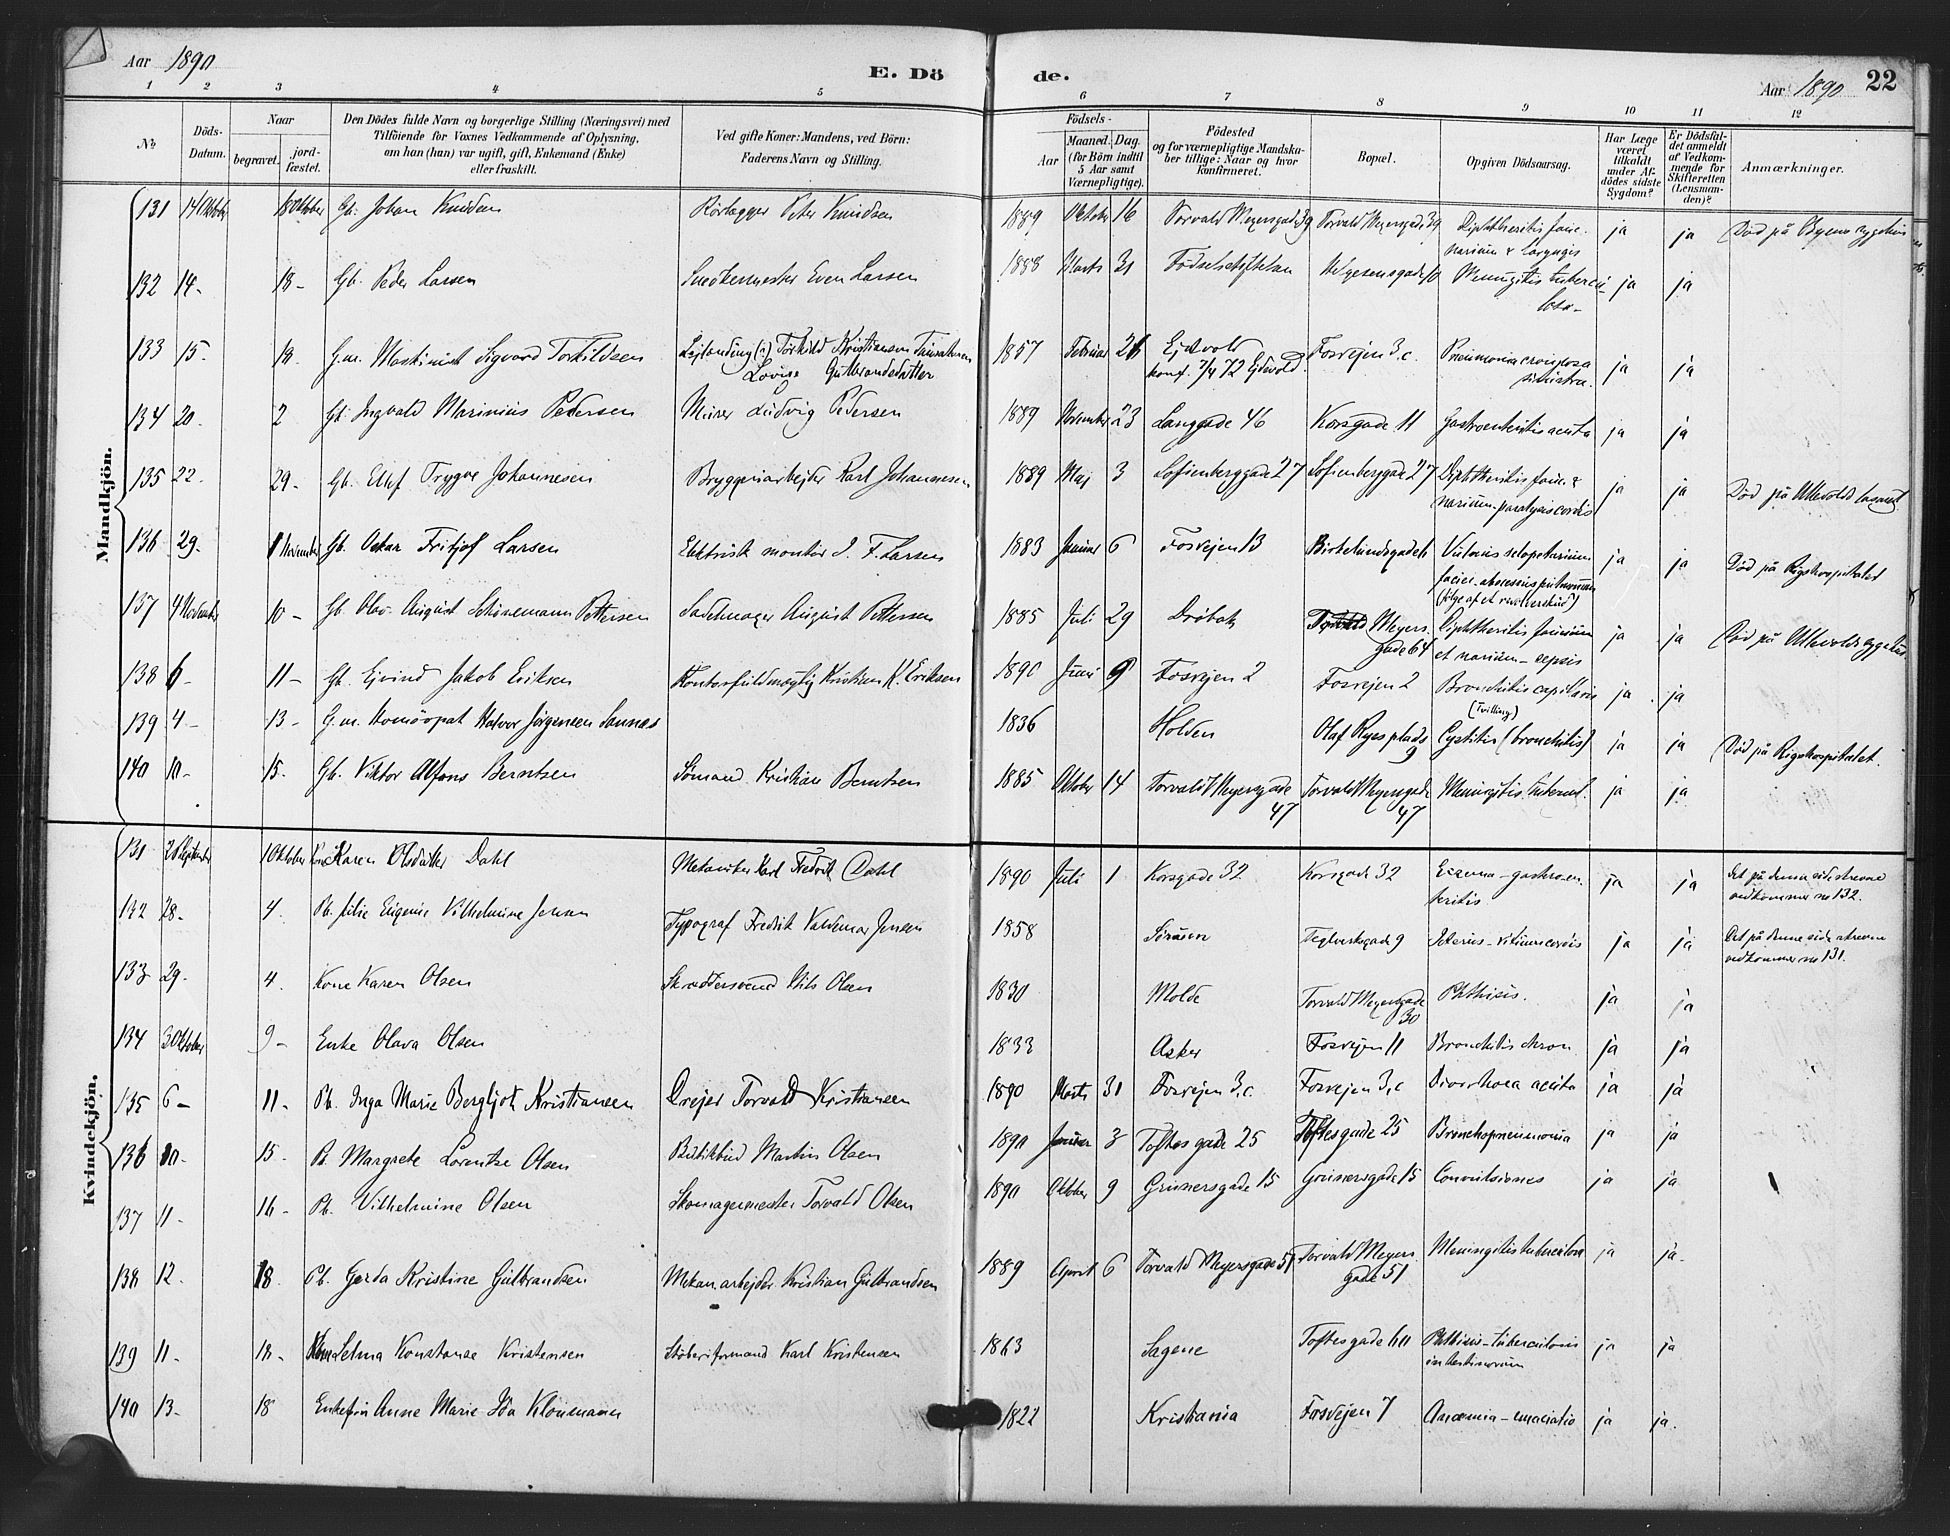 Aar 1890
E. Dö de.
Aar 1890 22
1 2 3 4 5 6 7 8 9 10 11 12
No.
Döds-Datum.
Naar
begravet.
jord-fæstet.
Den Dödes fulde Navn og borgerlige Stilling (Næringsvei) med
Tilföiende for Voxnes Vedkommende af Oplysning,
om han (hun) var ugift, gift, Enkemand (Enke)
eller fraskilt.
Ved gifte Koner: Mandens, ved Börn:
Faderens Navn og Stilling.
Födsels-
Aar
Maaned. Dag.
(for Börn indtil
5 Aar samt
Værnepligtige).
Födested
og for værnepligtige Mandska-
ber tillige: Naar og hvor
konfirmeret.
Bopæl.
Opgiven Dödsaarsag.
Har Læge
været
tilkaldt
under Af-
dödes sidste
Sygdom?
Er Dödsfal-
det anmeldt
af Vedkom-
mende for
Skifteretten
(Lensman-
den)?
Anmærkninger.
Mandkjön.
131 14 Oktober 18 Oktober Gb. Johan Knudsen Rörlægger Peter Knudsen 1889 Oktober 16 Torvald Meyersgade 39 Torvald Meyersgade 39 Diphtheritis faucium
narium & laryngis ja ja Död på Byens sygehus
132 14 - 18 - Gb. Peder Larsen Snedkermester Even Larsen 1888 Marts 31 Födselsstiftelsen Helgesensgade 10 Meningitis tubercu-
losa - ja ja
133 15. 18. G.m. Maskinist Sigvard Torkildsen Torkild Kristiansen
Lovise Gulbrandsdatter 1857 Februar 26 Ejdsvold
konf. 7/4 72 Ejdsvold. Fosvejen 3, c. Pneumonia crouposa
sinistra. ja ja
134 20. 2 Gb. Ingvald Marinius Pedersen Murer Ludvig Pedersen 1889 November 23 Langgade 46 Korsgade 11 Gastroenteritis acuta ja ja
135 22. 29 - Gb. Ellef Trygve Johannesen Bryggeriarbejder Karl Johannesen 1889 Maj 3 Sofienberggade 27 Sofienberggade 27 Diphtheritis faucium &
narium - paralysis cordis ja ja Död på Ullevolds lasaret
136 29. 1 November Gb. Oskar Fritjof Larsen Elektrisk montör J. F. Larsen 1883 Januar 6 Fosvejen 13 Birkelundsgade 11 Vulnus sclopetarium
faciei - abscessus putridum
(fölge af et revolverskud) ja ja Död på Rigshospitalet
137 4 November 10 - Gb. Olav August Schönemann Pettersen Sadelmager August Pettersen 1885 Juli 29 Dröbak Torvald Meyers-
gade 64 Diphtheritis faucium
et narium - sepsis ja ja Död på Ullevolds sygehus
138 6 - 11 - Gb. Ejvind Jakob Eriksen Kontorfuldmægtig Kristian K. Eriksen 1890 Juni 9 Fosvejen 2 Fosvejen 2 Bronchitis capillaris
(Tvilling) ja ja
139 4 - 13 - G.m. Homöopat Halvor Jörgensen Sannes 1836 Holden Olaf Ryes plads
9 Cystitis (bronchitis) ja ja Död på Rigshospitalet.
140 10 - 15. Gb. Viktor Alfons Berntsen Sömand Kristian Berntsen 1885 Oktober 14 Torvald Meyersgade
47 Torvald Meyersgade
47 Meningitis tubercul. ja ja
Kvindekjön.
131 28 September 1 Oktober Kone Karen Olsdatter Dahl Mekaniker Karl Fredrik Dahl 1890 Juli 1 Korsgade 32 Korsgade 32 Eczema - gastroen-
teritis ja ja Det på denne side skrevne
vedkommer no 132.
132 28. 4. Pb. Julie Eugenie Vilhelmine Jensen Typograf Fredrik Valdemar Jensen 1858 Sörum Teglverksgade 9 Icterus - vitium cordis ja ja Det på denne side skrevne
vedkommer no 131.
133 29. 4. Kone Karen Olsen Skræddersvend Nils Olsen 1830 Molde Torvald Meyersgade
30 Phthisis. ja ja
134 3 Oktober 9 - Enke Olava Olsen 1833 Asker Fosvejen 11 Bronchitis chron. ja ja
135 6 - 11 - Pb. Inga Marie Bergljot Kristiansen Drejer Torvald Kristiansen 1890 Marts 31 Fosvejen 3, c. Fosvejen 3, c Diarrhoea acuta ja ja
136 10 - 15. Pb. Margrete Lorentze Olsen Butikbud Martin Olsen 1890 Januar 3 Toftesgade 25 Toftesgade 25 Bronchopneumonia ja ja
137 11 - 16 - Pb. Vilhelmine Olsen Skomagermester Torvald Olsen 1890 Oktober 9 Grünersgade 15 Grünersgade 15 Convulsiones ja ja
138 12. 18. Pb. Gerda Kristine Gulbrandsen Mekan. arbejder Kristian Gulbrandsen 1889 April 6 Torvald Meyersgade 51 Torvald Meyers
gade 51 Meningitis tuberculosa ja ja
139 11 - 18 - Kone Selma Konstanse Kristensen Stöberiformand Karl Kristensen 1863 Sagene Toftesgade 60 Phthisis - tuberculosis
intestinorum ja ja
140 13 - 18 Enkefru Anne Marie Ida Kloumann 1822 Kristiania Fosvejen 7 Anæmia - emaciatio ja ja.